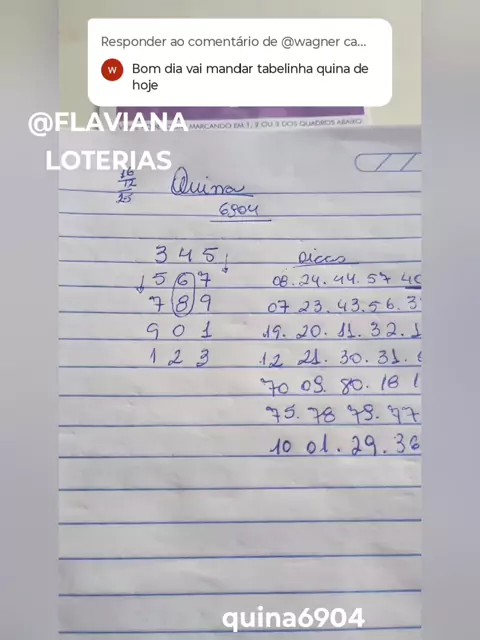 Responder ao comentário de @wagner ca...
W
Bom dia vai mandar tabelinha quina de
hoje
MARCANDO EM 1, 2 OU 3 DOS QUADROS ABAIXO
@FLAVIANA
LOTERIAS
16
12
25
Quina
6904
3 4 5
5 6 7
7 8 9
9 0 1
1 2 3
Dicas
08. 24. 44. 57
07 23. 43. 56. 3
19. 20. 11. 32. 1
12 21. 30. 31.
70 09. 80. 18 1
75. 78 79. 77
10 01. 29. 36
quina6904